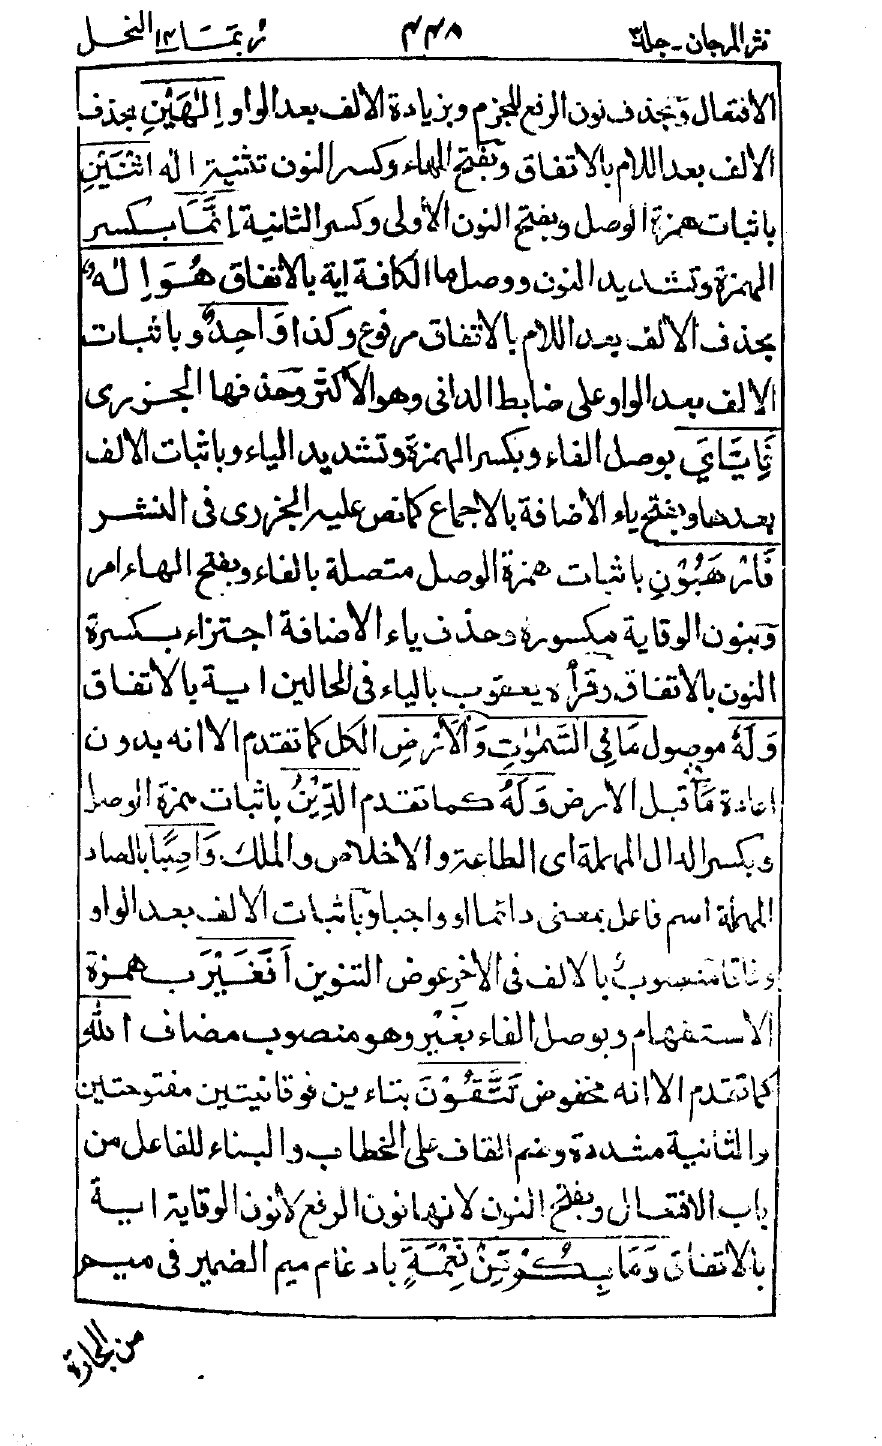 نثر المرجان - جلد٣ ٤٤٨ ربما ١٤ النحل
الافتعال وبحذف نون الرفع للجزم وبزيادة الالف بعد الواو إِلٰهَيْنِ بحذف
الالف بعد اللام بالاتفاق وبفتح الهاء وكسر النون تثنية اله اثْنَيْنِ
باثبات همزة الوصل وبفتح النون الأولى وكسر الثانية إِنَّمَا بكسر
الهمزة وتشديد النون ووصل ما الكافة اية بالاتفاق هُوَ اِلٰهٌ
بحذف الالف بعد اللام بالاتفاق مرفوع وكذا وَاحِدٌ وباثبات
الالف بعد الواو على ضابط الدانى وهو الأكثر وحذفها الجزرى
فَإِيَّايَ بوصل الفاء وبكسر الهمزة وتشديد الياء وباثبات الالف
بعدها وبفتح ياء الأضافة بالاجماع كما نص عليه الجزرى فى النشر
فَارْهَبُوْنِ باثبات همزة الوصل متصلة بالفاء وبفتح الهاء امر
وبنون الوقاية مكسورة وحذف ياء الأضافة اجتزاء بكسرة
النون بالاتفاق وقرأه يعقوب بالياء فى الحالين اية بالاتفاق
وَلَهٗ موصول مَا فِي السَّمٰوٰتِ وَالْأَرْضِ الكل كما تقدم الا انه بدون
اعادة مَا قبل الارض وَلَهُ كما تقدم الدِّيْنُ باثبات همزة الوصل
وبكسر الدال المهملة اى الطاعة والاخلاص والملك وَاصِبًا بالصاد
المهملة اسم فاعل بمعنى دائما او واجبا وباثبات الالف بعد الواو
وفاقا منصوب بالالف فى الأخر عوض التنوين أَفَغَيْرَ بهمزة
الاستفهام وبوصل الفاء بغَيْر وهو منصوب مضاف اللّٰهِ
كما تقدم الا انه مخفوض تَتَّقُوْنَ بتاءين فوقانيتين مفتوحتين
والثانية مشددة وضم القاف على الخطاب والبناء للفاعل من
باب الافتعال وبفتح النون لانها نون الرفع لا نون الوقاية اية
بالاتفاق وَمَا بِكُوْمِّنْ نِعْمَةٍ بادغام ميم الضمير فى ميم
من الجارة